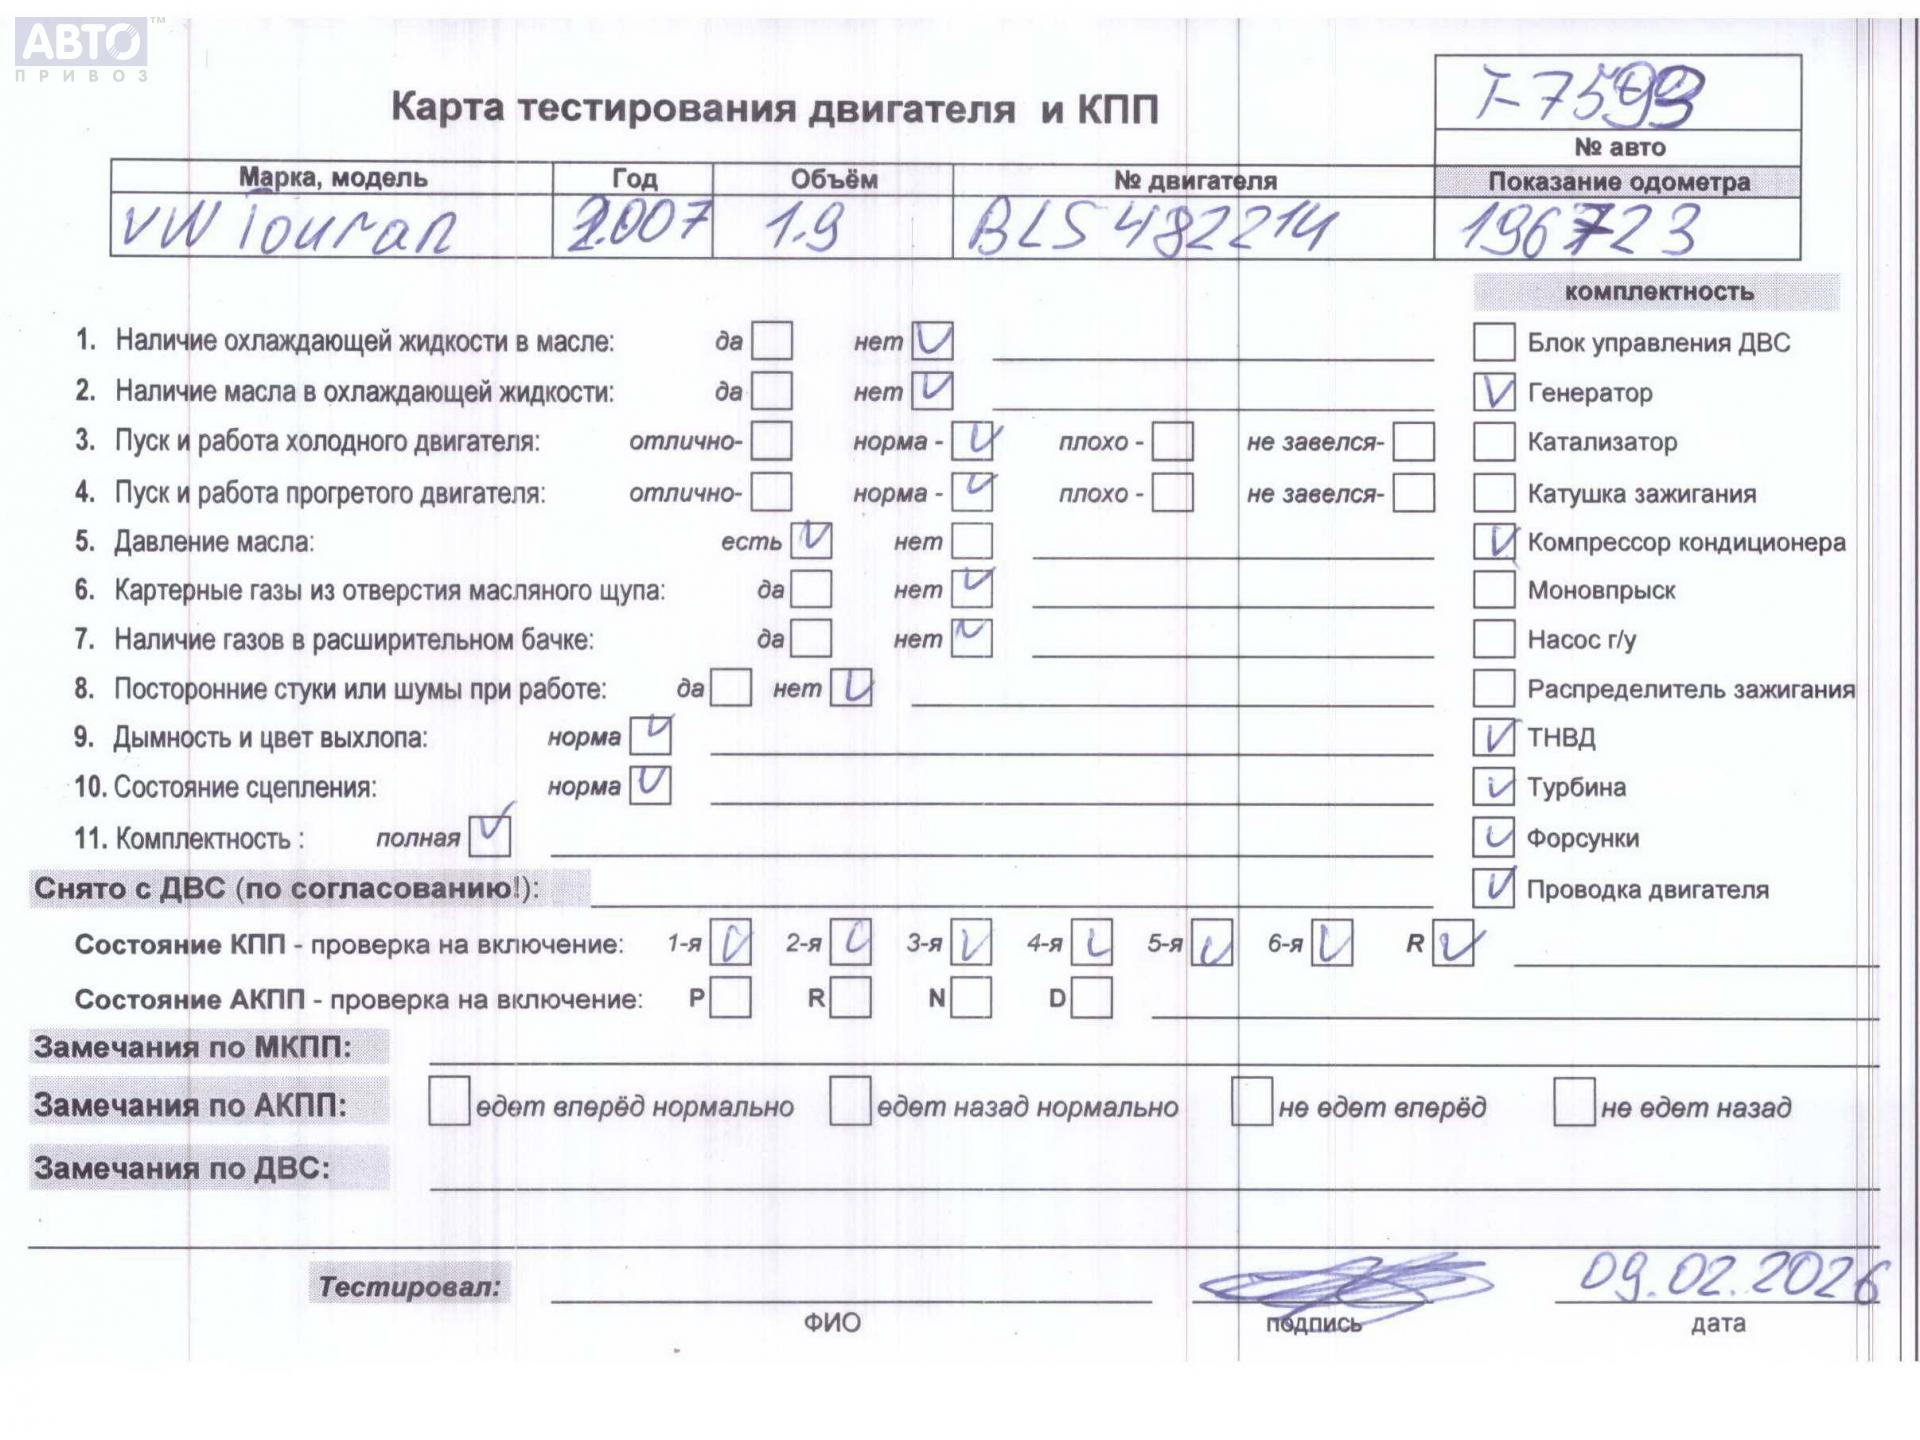 АВТО™
ПРИВОЗ
Карта тестирования двигателя и КПП
Т-7593
№ авто
Марка, модель Год Объём № двигателя Показание одометра
VW Touran 2007 1.9 BLS 482214 196723
комплектность
1. Наличие охлаждающей жидкости в масле: да нет V Блок управления ДВС
2. Наличие масла в охлаждающей жидкости: да нет V V Генератор
3. Пуск и работа холодного двигателя: отлично- норма - V плохо - не завелся- Катализатор
4. Пуск и работа прогретого двигателя: отлично- норма - V плохо - не завелся- Катушка зажигания
5. Давление масла: есть V нет V Компрессор кондиционера
6. Картерные газы из отверстия масляного щупа: да нет V Моновпрыск
7. Наличие газов в расширительном бачке: да нет V Насос г/у
8. Посторонние стуки или шумы при работе: да нет V Распределитель зажигания
9. Дымность и цвет выхлопа: норма V V ТНВД
10. Состояние сцепления: норма V V Турбина
11. Комплектность : полная V V Форсунки
Снято с ДВС (по согласованию!): V Проводка двигателя
Состояние КПП - проверка на включение: 1-я V 2-я V 3-я V 4-я V 5-я V 6-я V R V
Состояние АКПП - проверка на включение: P R N D
Замечания по МКПП:
Замечания по АКПП: едет вперёд нормально едет назад нормально не едет вперёд не едет назад
Замечания по ДВС:
Тестировал: 09.02.2026
ФИО подпись дата